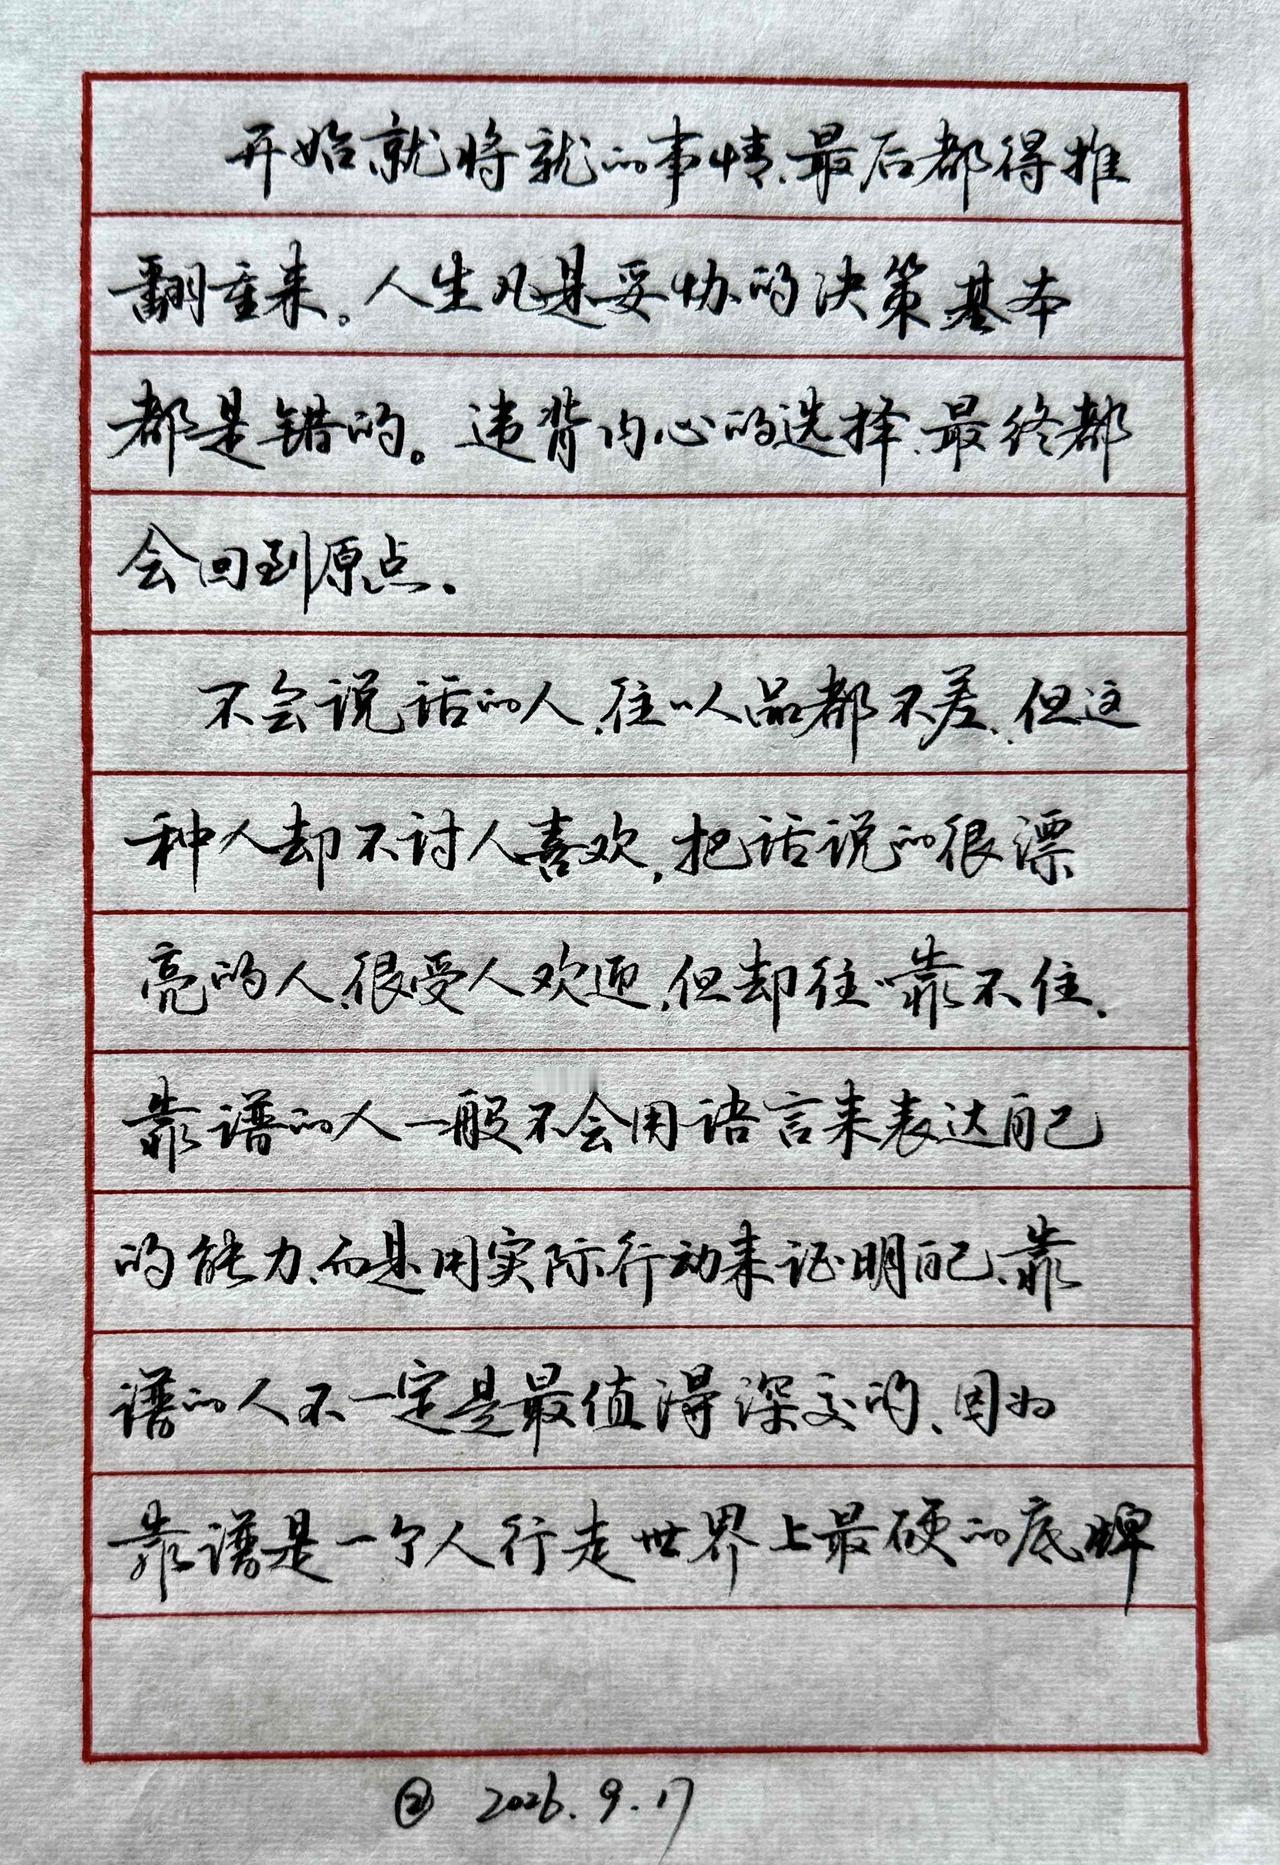 开始就将就的事情、最后都得推
翻重来。人生凡是妥协的决策、基本
都是错的。违背内心的选择、最终都
会回到原点.
不会说话的人、往〃人品都不差、但这
种人却不讨人喜欢,把话说的很漂
亮的人、很受人欢迎,但却往〃靠不住.
靠谱的人一般不会用语言来表达自己
的能力、而是用实际行动来证明自己、靠
谱的人不一定是最值得深交的、因为
靠谱是一个人行走世界上最硬的底牌
② 2026.9.17